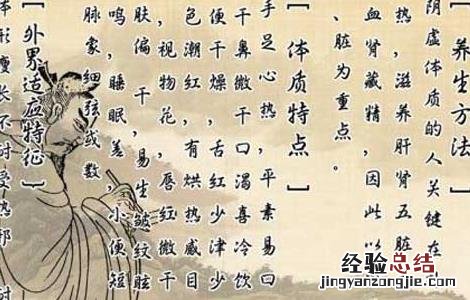 养生方法]
阴虚体质的人关键在
热，滋养肝肾五脏
血肾藏精，因此以
、脏为重点。
[体质特点]
手足心热，平素易口
干鼻微干口渴喜冷饮
便干燥，舌红少津少
色潮红，有烘热感目
，视物花，唇红微干
肤偏干，易生皱纹眩
鸣，睡眠差，小便短
脉象细弦或数。
[外界适应特征]
形瘦长不耐受热邪
经验总结
www.jianianjianghu.com